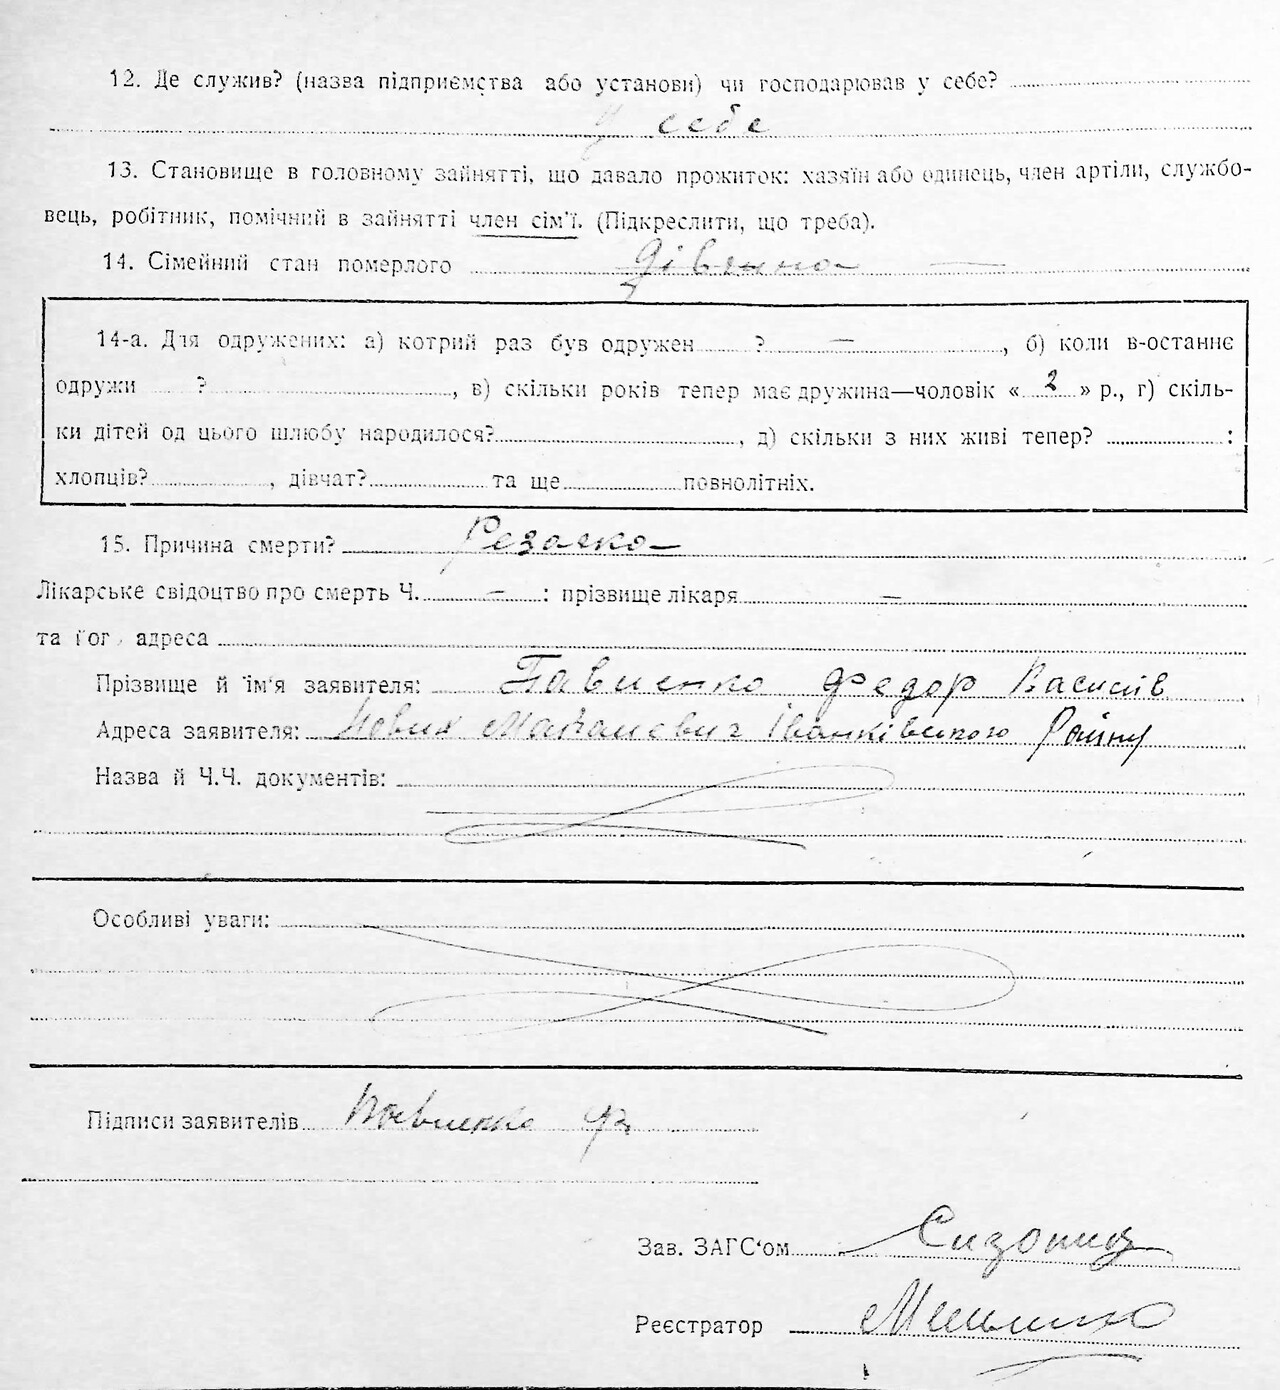 12. Де служив? (назва підприємства або установи) чи господарював у себе?
у себе
13. Становище в головному зайнятті, що давало прожиток: хазяїн або одинець, член артіли, службо-
вець, робітник, помічний в зайнятті член сім'ї. (Підкреслити, що треба).
14. Сімейний стан померлого
14-а. Для одружених: а) котрий раз був одружен ? —, б) коли в-останнє
одружи ?, в) скільки років тепер має дружина—чоловік « 2 » р., г) скіль-
ки дітей од цього шлюбу народилося?, д) скільки з них живі тепер? :
хлопців?, дівчат? та ще повнолітніх.
15. Причина смерти?
Лікарське свідоцтво про смерть Ч. — : прізвище лікаря —
та адреса
Прізвище й ім'я заявителя: Федор Василів
Адреса заявителя: Нових Іванківського Району
Назва й Ч.Ч. документів:
Особливі уваги:
Підписи заявителів
Зав. ЗАГС'ом
Реєстратор